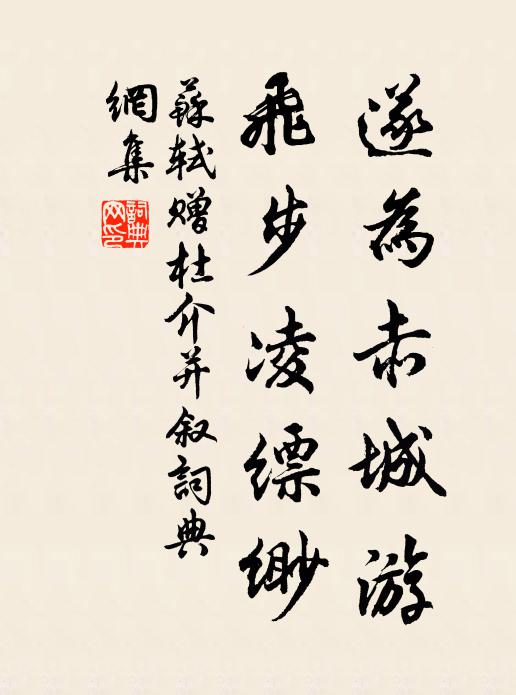 遂為赤城游
飛步凌縹緲
蘇軾贈杜介并叙詞典
網集
詞典網印